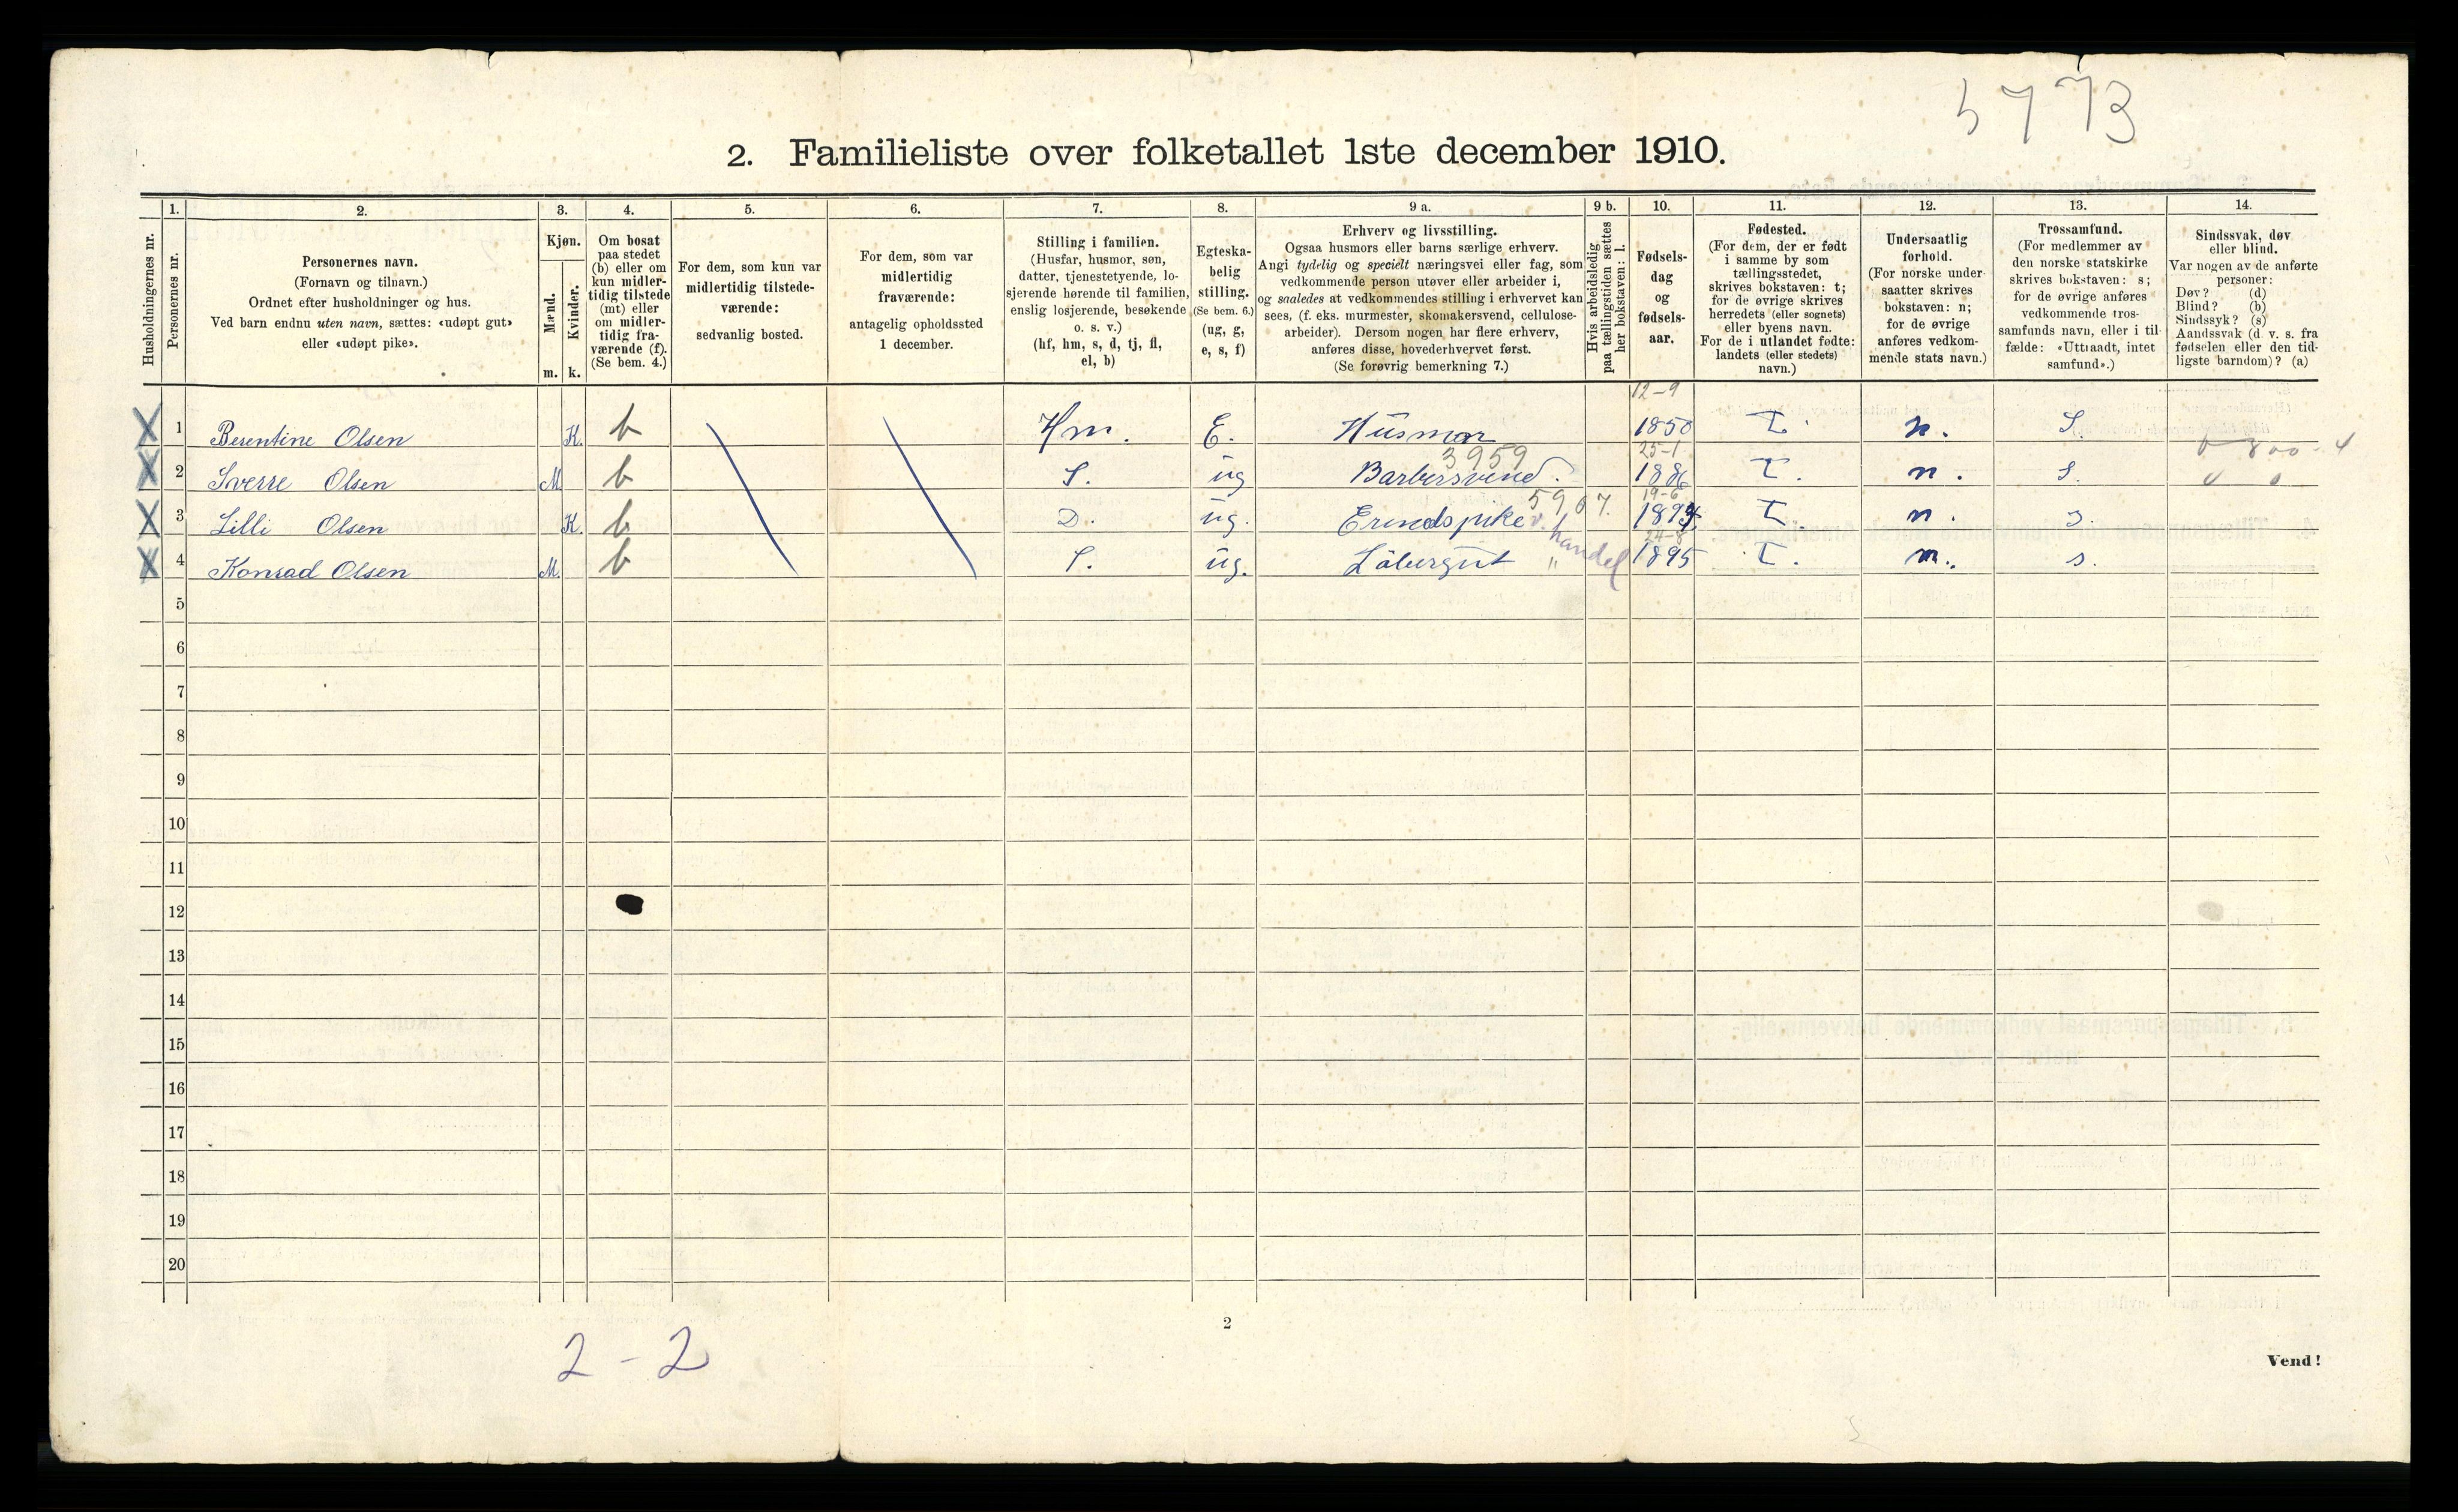 5773
2. Familieliste over folketallet 1ste december 1910.
Husholdningernes nr.
1.
Personernes nr.
2.
Personernes navn.
(Fornavn og tilnavn.)
Ordnet efter husholdninger og hus.
Ved barn endnu uten navn, sættes: «udøpt gut»
eller «udøpt pike».
3.
Kjøn.
Mænd.
m.
Kvinder.
k.
4.
Om bosat
paa stedet
(b) eller om
kun midler-
tidig tilstede
(mt) eller
om midler-
tidig fra-
værende (f).
(Se bem. 4.)
5.
For dem, som kun var
midlertidig tilstede-
værende:
sedvanlig bosted.
6.
For dem, som var
midlertidig
fraværende:
antagelig opholdssted
1 december.
7.
Stilling i familien.
(Husfar, husmor, søn,
datter, tjenestetyende, lo-
sjerende hørende til familien,
enslig losjerende, besøkende
o. s. v.)
(hf, hm, s, d, tj, fl,
el, b)
8.
Egteska-
belig
stilling.
(Se bem. 6.)
(ug, g,
e, s, f)
9 a.
Erhverv og livsstilling.
Ogsaa husmors eller barns særlige erhverv.
Angi tydelig og specielt næringsvei eller fag, som
vedkommende person utøver eller arbeider i,
og saaledes at vedkommendes stilling i erhvervet kan
sees, (f. eks. murmester, skomakersvend, cellulose-
arbeider). Dersom nogen har flere erhverv,
anføres disse, hovederhvervet først.
(Se forøvrig bemerkning 7.)
9 b.
Hvis arbeidsledig
paa tællingstiden sættes
her bokstaven: l.
10.
Fødsels-
dag
og
fødsels-
aar.
11.
Fødested.
(For dem, der er født
i samme by som
tællingsstedet,
skrives bokstaven: t;
for de øvrige skrives
herredets (eller sognets)
eller byens navn.
For de i utlandet fødte:
landets (eller stedets)
navn.)
12.
Undersaatlig
forhold.
(For norske under-
saatter skrives
bokstaven: n;
for de øvrige
anføres vedkom-
mende stats navn.)
13.
Trossamfund.
(For medlemmer av
den norske statskirke
skrives bokstaven: s;
for de øvrige anføres
vedkommende tros-
samfunds navn, eller i til-
fælde: «Uttraadt, intet
samfund».)
14.
Sindssvak, døv
eller blind.
Var nogen av de anførte
personer:
Døv? (d)
Blind? (b)
Sindssyk? (s)
Aandssvak (d. v. s. fra
fødselen eller den tid-
ligste barndom)? (a)
12-9
X 1 Berentine Olsen K. b Hm. E. Husmor 1850 T. n. S.
3959 25-1
X 2 Sverre Olsen M b S. ug Barbersvend. 1886 T. n. S.
5907. 19-6
X 3 Lilli Olsen K. b D. ug. Erendspike v. handel 1894 T n. s.
24-8
X 4 Konrad Olsen M. b S. ug. Løbergut " 1895 T. n. s.
5
6
7
8
9
10
11
12
13
14
15
16
17
18
19
20
2
2 - 2
Vend!